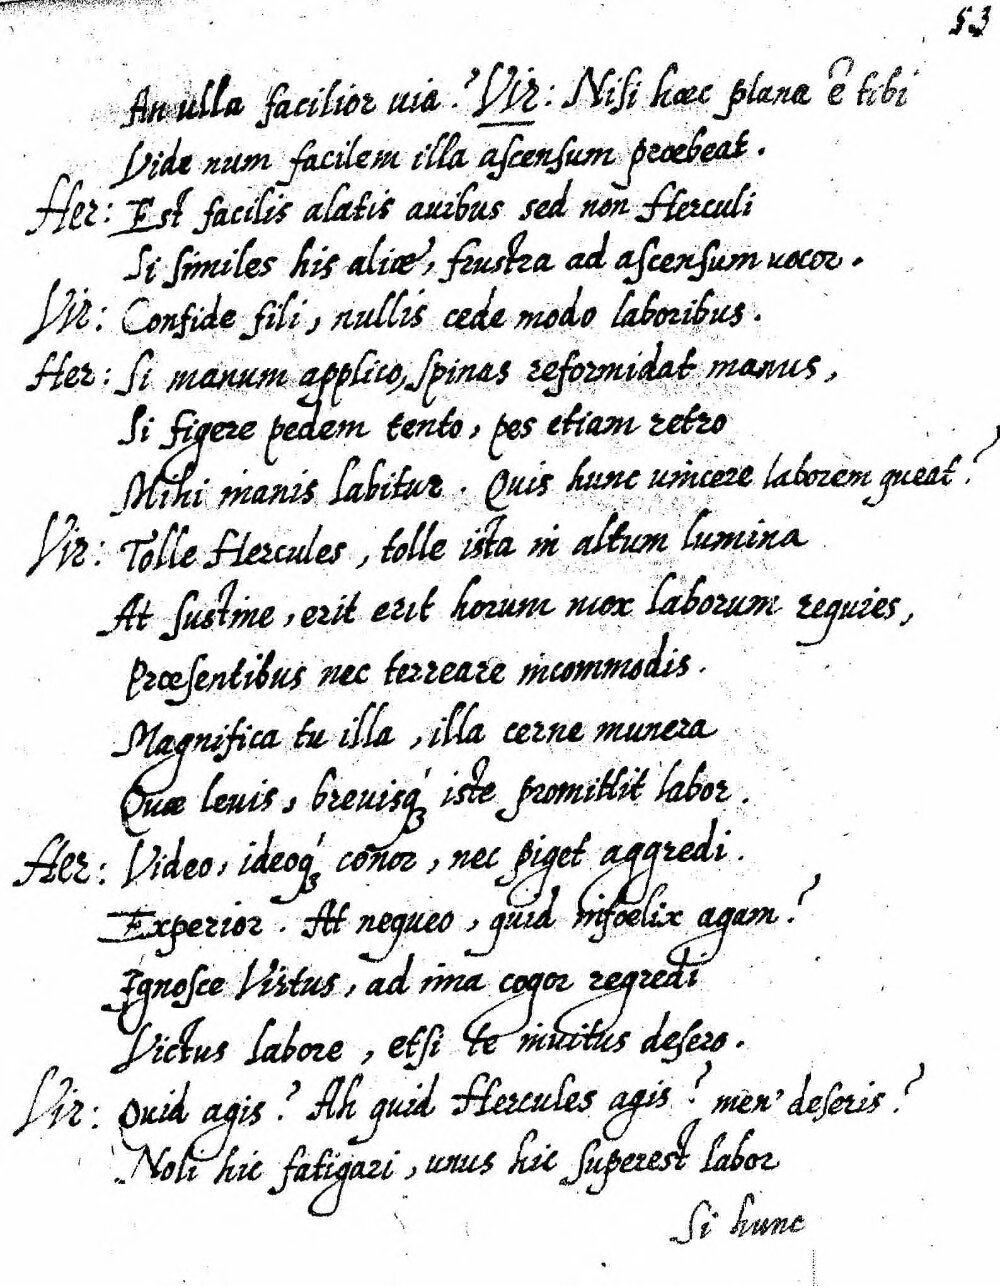 53
An ulla facilior uia? Vir: Nisi hæc plana ẽ tibi
Vide num facilem illa ascensum præbeat.
Her: Est facilis alatis auibus sed non Herculi
Si similes his aliæ, frustra ad ascensum uocor.
Vir: Confide fili, nullis cede modo laboribus.
Her: Si manum applico, spinas reformidat manus,
Si figere pedem tento, pes etiam retro
Mihi inanis labitur. Quis hunc uincere laborem queat?
Vir: Tolle Hercules, tolle ista in altum lumina
At sustine, erit erit horum mox laborum requies,
Præsentibus nec terreare incommodis.
Magnifica tu illa, illa cerne munera
Quæ leuis, breuisq́ꝫ iste promittit labor.
Her: Video, ideoq́ꝫ coñor, nec piget aggredi.
Experior. At nequeo, quid infœlix agam?
Ignosce Virtus, ad ima cogor regredi
Victus labore, etsi te inuitus desero.
Vir: Quid agis? Ah quid Hercules agis? men' deseris?
Noli hic fatigari, unus hic superest labor
Si hunc